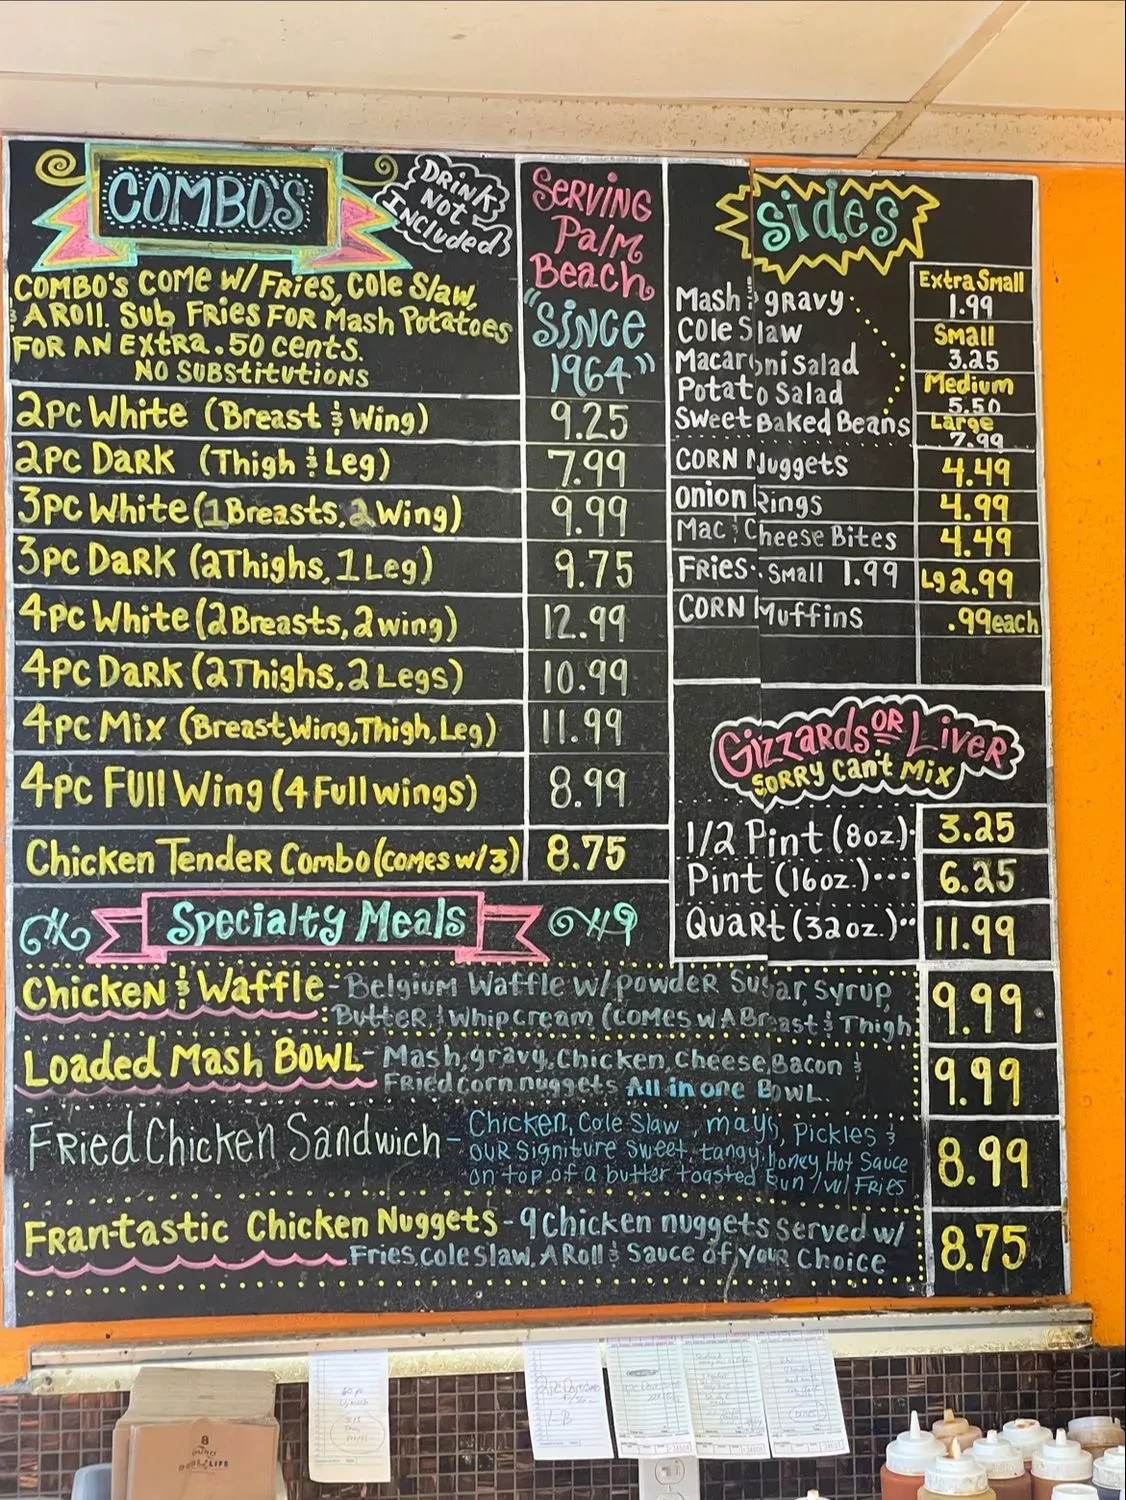 COMBO'S
DRINK
NOT
INCLUDED
COMBO'S COME W/ FRIES, COLE SLAW,
& A ROLL. SUB FRIES FOR MASH POTATOES
FOR AN EXTRA .50 CENTS.
NO SUBSTITUTIONS
SERVING
PALM
BEACH
"SINCE
1964"
2PC WHITE (BREAST & WING) 9.25
2PC DARK (THIGH & LEG) 7.99
3PC WHITE (1 BREASTS, 2 WING) 9.99
3PC DARK (2 THIGHS, 1 LEG) 9.75
4PC WHITE (2 BREASTS, 2 WING) 12.99
4PC DARK (2 THIGHS, 2 LEGS) 10.99
4PC MIX (BREAST, WING, THIGH, LEG) 11.99
4PC FULL WING (4 FULL WINGS) 8.99
CHICKEN TENDER COMBO (COMES W/ 3) 8.75
Sides
MASH & GRAVY
COLE SLAW
MACARONI SALAD
POTATO SALAD
SWEET BAKED BEANS
Extra Small
1.99
Small
3.25
Medium
5.50
Large
7.99
CORN NUGGETS 4.49
ONION RINGS 4.99
MAC & CHEESE BITES 4.49
FRIES.. SMALL 1.99 Lg 2.99
CORN MUFFINS .99 each
GIZZARDS OR LIVER
SORRY CAN'T MIX
1/2 PINT (8oz.). 3.25
PINT (16oz.)... 6.25
QUART (32oz.).. 11.99
SPECIALTY MEALS
CHICKEN & WAFFLE - BELGIUM WAFFLE W/ POWDER SUGAR, SYRUP,
BUTTER & WHIP CREAM (COMES W A BREAST & THIGH 9.99
LOADED MASH BOWL - MASH, GRAVY, CHICKEN, CHEESE, BACON &
FRIED CORN NUGGETS ALL IN ONE BOWL. 9.99
FRIED CHICKEN SANDWICH - CHICKEN, COLE SLAW, MAYO, PICKLES &
OUR SIGNITURE SWEET, TANGY, HONEY, HOT SAUCE
ON TOP OF A BUTTER TOASTED BUN / W/ FRIES 8.99
FRAN-TASTIC CHICKEN NUGGETS - 9 CHICKEN NUGGETS SERVED W/
FRIES, COLE SLAW, A ROLL & SAUCE OF YOUR CHOICE 8.75